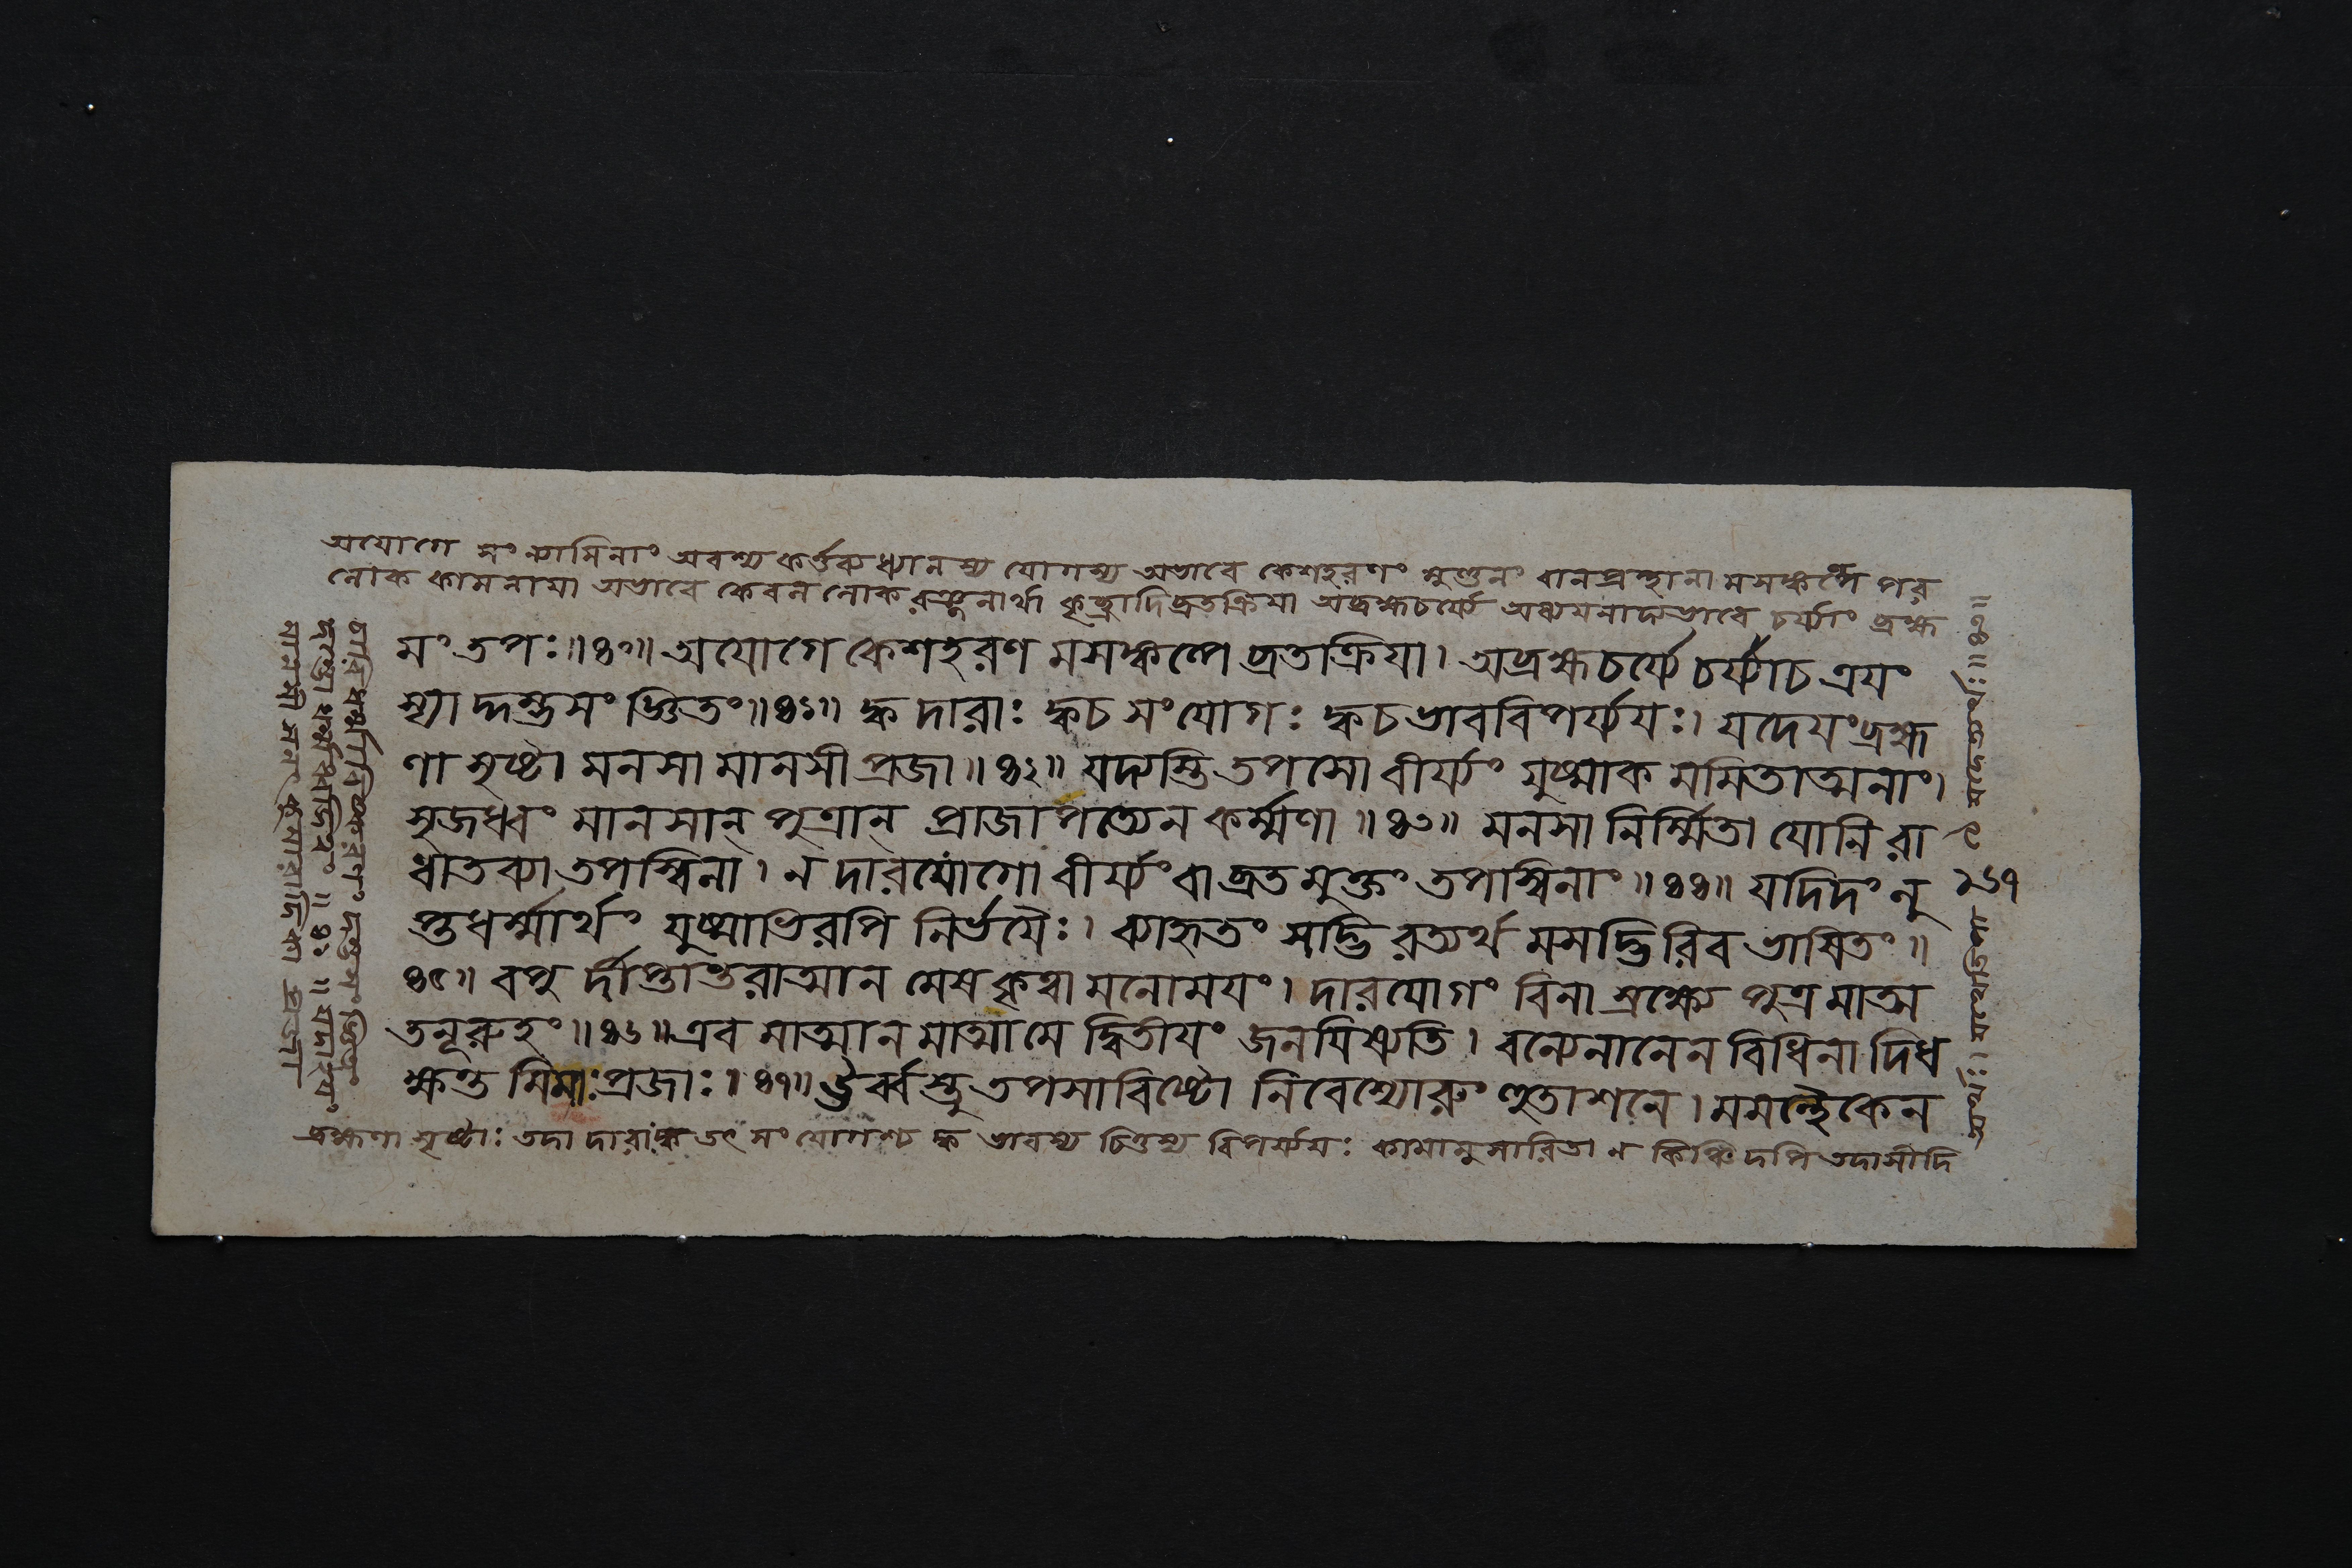 অযোগে সংন্যাসিনাং অবশ্য কর্ত্তব্যধ্যানস্য যোগস্য অভাবে কেশহরণং মুণ্ডনং বানপ্রস্থানামসঙ্কল্পে পর
লোক কামনায়া অভাবে কেবল লোকরঞ্জনার্থা কৃচ্ছ্রাদিব্রতক্রিয়া অব্রহ্মচর্য্যে অধ্যয়নাদ্যভাবে চর্য্যা ব্রহ্ম
মং তপঃ॥৪০॥ অযোগে কেশহরণ মসঙ্কল্পে ব্রতক্রিয়া। অব্রহ্মচর্য্যে চর্য্যাচ ত্রয়ং
স্যাদ্দম্ভসংজ্ঞিতং॥৪১॥ ক্ব দারাঃ ক্বচ সংযোগঃ ক্বচ ভাববিপর্য্যয়ঃ। যদেয়ং ব্রহ্ম
ণা সৃষ্টা মনসা মানসী প্রজা॥৪২॥ যদ্যস্তি তপসো বীর্য্যং যুষ্মাক মমিতাত্মনাং।
সৃজধ্বং মানসান্ পুত্রান্ প্রাজাপত্যেন কর্ম্মণা॥৪৩॥ মনসা নির্ম্মিতা যোনি রা
ধাতব্যা তপস্বিনা। ন দারযোগো বীর্য্যং বা ব্রতমুক্তং তপস্বিনাং॥৪৪॥ যদিদং লু
প্তধর্ম্মার্থং যুষ্মাভিরপি নির্ভয়ৈঃ। ব্যাহৃতং সদ্ভি রত্যর্থ মসদ্ভিরিব ভাষিতং॥
৪৫॥ বপু র্দীপ্তান্তরাত্মান মেষ কৃত্বা মনোময়ং। দারযোগং বিনা স্রক্ষ্যে পুত্র মাত্ম
তনূরুহং॥৪৬॥ এব মাত্মান মাত্মা মে দ্বিতীয়ং জনয়িষ্যতি। বন্যেনানেন বিধিনা দিধ
ক্ষন্ত মিমাঃ প্রজাঃ॥৪৭॥ ঔর্ব্বস্তু তপসাবিষ্টো নিবেশ্যোরুং হুতাশনে। মমন্থৈকেন
ব্রহ্মণা সৃষ্টাঃ তদা দারাঃ ক্ব তৎ সংযোগশ্চ ক্ব ভাবস্য চিত্তস্য বিপর্য্যয়ঃ কামানুসারিতা ন কিঞ্চিদপি তদাসীদি
২৬৭